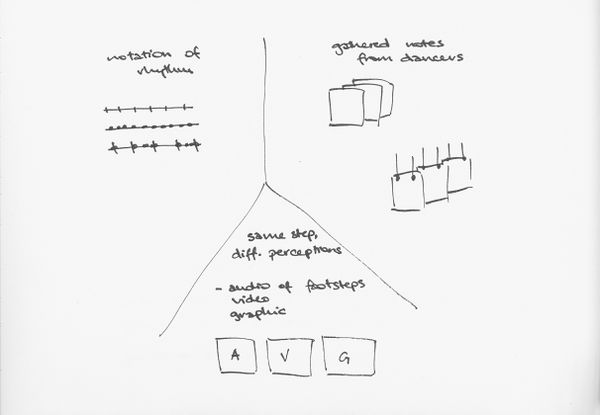 notation of
rhythm
gathered notes
from dancers
same step,
diff. perceptions
- audio of footsteps
video
graphic
A V G